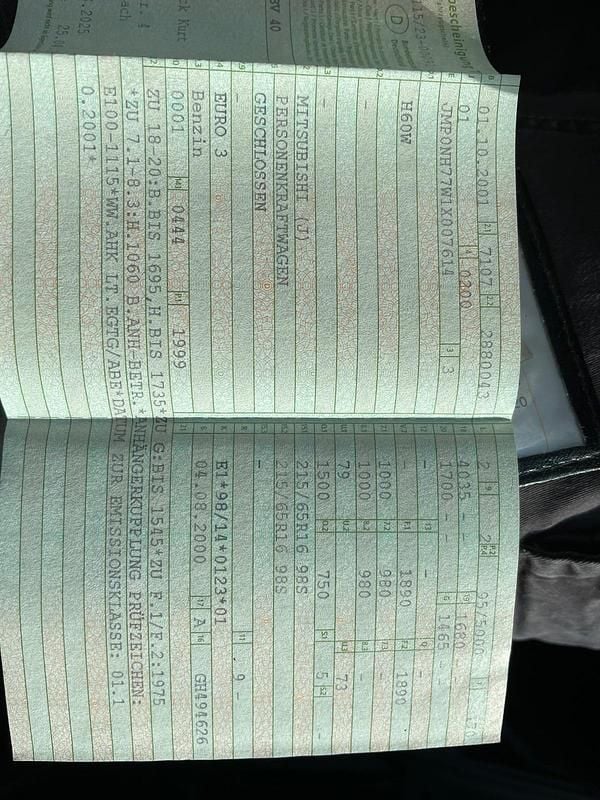 01.10.2001 2.1 7107 2.2 2880043
01 4 0200
JMP0NH77W1X007614 3 3
H60W
-
MITSUBISHI (J)
PERSONENKRAFTWAGEN
GESCHLOSSEN
-
EURO 3
Benzin
0001 0444 P.1 1999
ZU 18-20:B.BIS 1695,H.BIS 1735*ZU G:BIS 1545*ZU F.1/F.2:1975
*ZU 7.1-8.3:H.1060 B.ANH-BETR.*ANHÄNGERKUPPLUNG PRÜFZEICHEN:
E100-1115*WW.AHK LT.EGTG/ABE*DATUM ZUR EMISSIONSKLASSE: 01.1
0.2001*
2 2 95/5000
4035 - - 1680 -
1700 - - G 1465 - -
- 13 - Q -
- F.1 1890 F.2 1890
1000 7.2 980 7.3 -
1000 8.2 980 8.3 -
79 U.2 U.3 73
1500 O.2 750 S.1 5 S.2 -
215/65R16 98S
215/65R16 98S
-
R 11 9 -
K E1*98/14*0123*01
6 04.08.2000 17 A 16 GH494626
21
bescheinigung
D
BV 40
ck Kurt
r. 4
ach
.2025